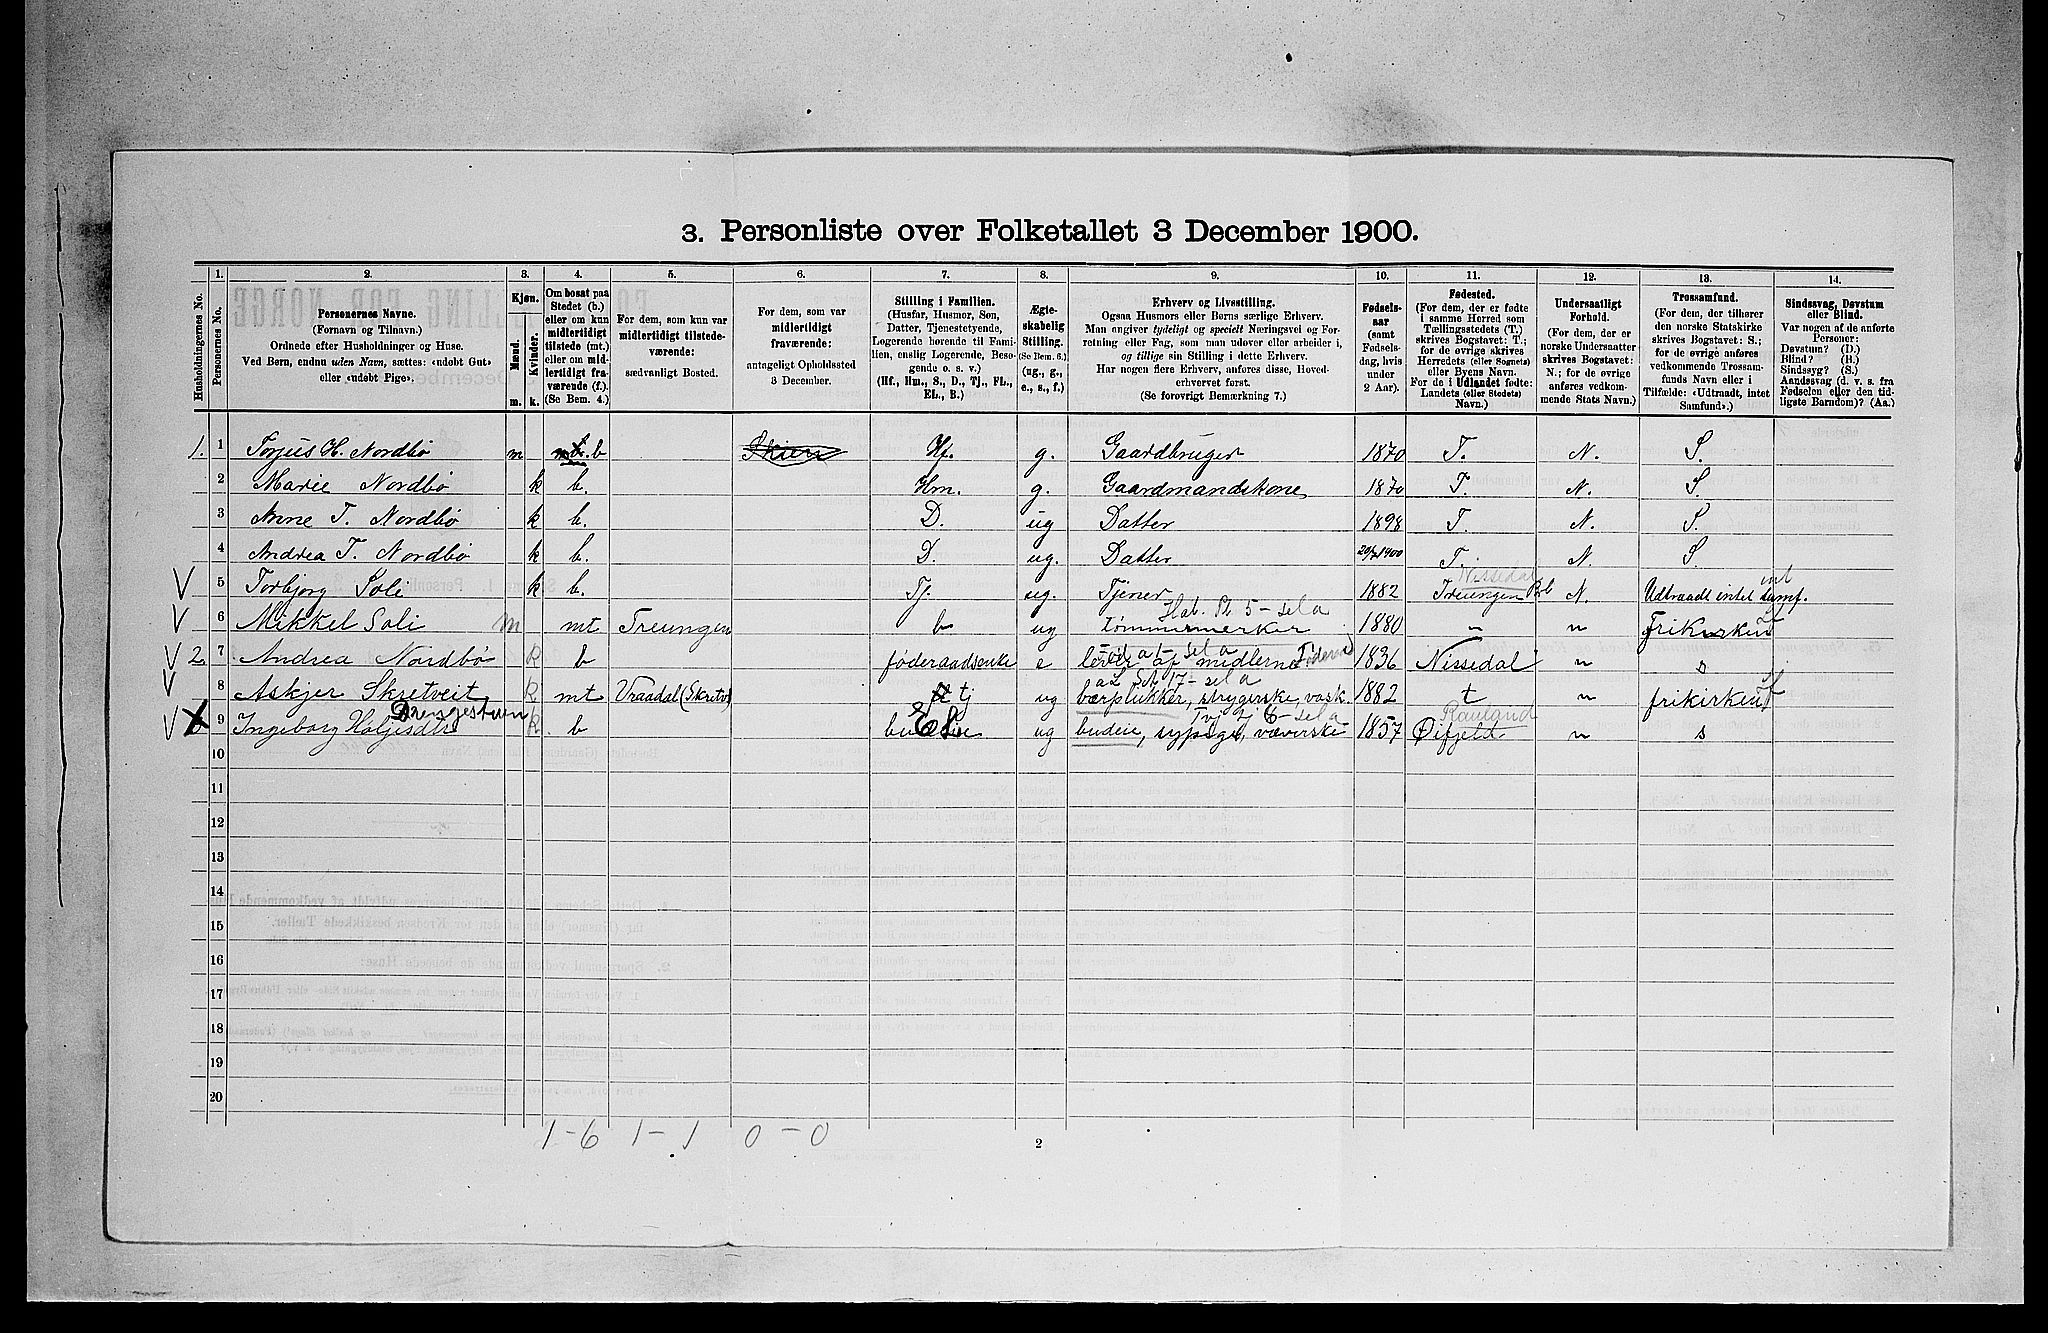 3. Personliste over Folketallet 3 December 1900.
1. 2. 3. 4. 5. 6. 7. 8. 9. 10. 11. 12. 13. 14.
Husholdningernes No.
Personernes No.
Personernes Navne.
(Fornavn og Tilnavn.)
Ordnede efter Husholdninger og Huse.
Ved Børn, endnu uden Navn, sættes: «udøbt Gut»
eller «udøbt Pige».
Kjøn.
Mænd.
Kvinder.
m. k.
Om bosat paa
Stedet (b.)
eller om kun
midlertidigt
tilstede (mt.)
eller om mid-
lertidigt fra-
værende (f.)
(Se Bem. 4.)
For dem, som kun var
midlertidigt tilstede-
værende:
sædvanligt Bosted.
For dem, som var
midlertidigt
fraværende:
antageligt Opholdssted
3 December.
Stilling i Familien.
(Husfar, Husmor, Søn,
Datter, Tjenestetyende,
Logerende hørende til Fami-
lien, enslig Logerende, Besø-
gende o. s. v.)
(Hf., Hm., S., D., Tj., FL.,
EL., B.)
Ægte-
skabelig
Stilling.
(Se Bem. 6.)
(ug., g.,
e., s., f.)
Erhverv og Livsstilling.
Ogsaa Husmors eller Børns særlige Erhverv.
Man angiver tydeligt og specielt Næringsvei og For-
retning eller Fag, som man udøver eller arbeider i,
og tillige sin Stilling i dette Erhverv.
Har nogen flere Erhverv, anføres disse, Hoved-
erhvervet først.
(Se forøvrigt Bemærkning 7.)
Fødsels-
aar
(samt
Fødsels-
dag, hvis
under
2 Aar.)
Fødested.
(For dem, der er fødte
i samme Herred som
Tællingsstedets (T.)
skrives Bogstavet: T.;
for de øvrige skrives
Herredets (eller Sognets)
eller Byens Navn.
For de i Udlandet fødte:
Landets (eller Stedets)
Navn.)
Undersaatligt
Forhold.
(For dem, der er
norske Undersaatter
skrives Bogstavet:
N.; for de øvrige
anføres vedkom-
mende Stats Navn.)
Trossamfund.
(For dem, der tilhører
den norske Statskirke
skrives Bogstavet: S.;
for de øvrige anføres
vedkommende Trossam-
funds Navn eller i
Tilfælde: «Udtraadt, intet
Samfund».)
Sindssvag, Døvstum
eller Blind.
Var nogen af de anførte
Personer:
Døvstum? (D.)
Blind? (B.)
Sindssyg? (S.)
Aandssvag (d. v. s. fra
Fødselen eller den tid-
ligste Barndom)? (Aa.)
1. 1 Torjus H. Nordbø m mt. b Skien Hf. g. Gaardbruger 1870 T. N. S.
2 Marie Nordbø k b. Hm. g. Gaardmandskone 1870 T. N. S.
3 Anne T. Nordbø k b. D. ug Datter 1898 T. N. S.
4 Andrea T. Nordbø k b. D. ug. Datter 1900 T. N. S.
Nissedal
5 Torbjørg Soli k b. Tj. ug. Tjener 1882 Treungen N. Udtraadt intet samf.
5 - sela
6 Mikkel Soli m mt Treungen b ug tømmermerker 1880 " " Frikirken
sela
2. 7 Andrea Nordbø k b føderaadsenke e lever af midlerne 1836 Nissedal " s
17 - sela
8 Askjer Skretveit k mt Vraadal (Skretv) tj ug bærplukker, strygerske, vask. 1882 t " frikirken
Drengestuen 6 - sela Rauland
9 Ingeborg Holjesdtr k. b El. ug budeie, sypige, væverske 1857 Øifjeld " s
10
11
12
13
14
15
16
17
18
19
20
1-6 1-1 0-0
2